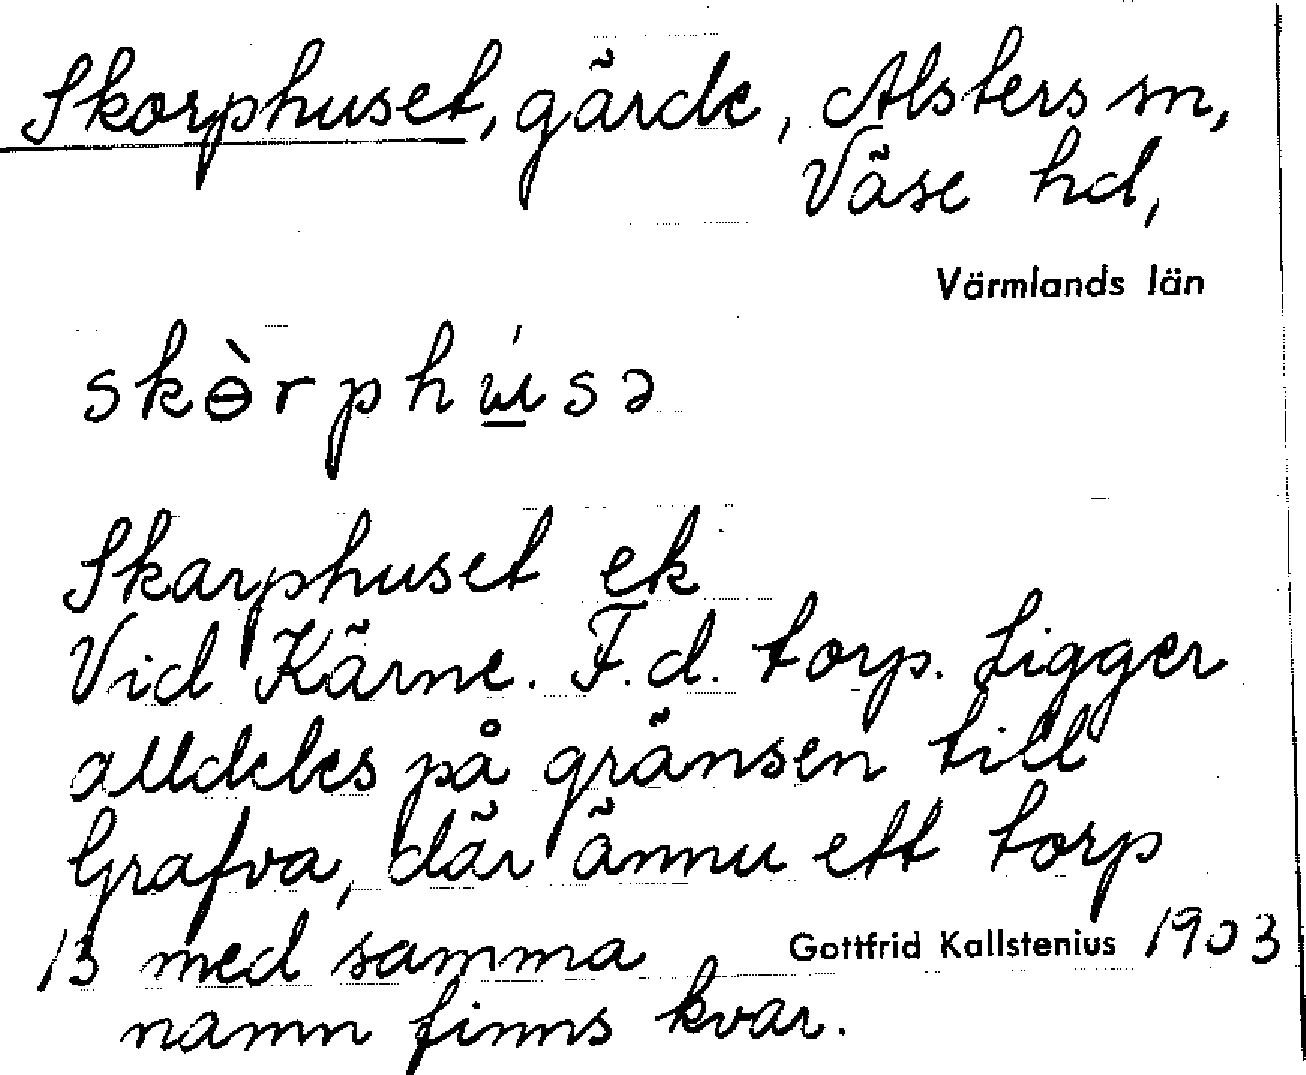 Skorphuset, gärde, Alsters sn,
Väse hd,
Värmlands län
skɵ̀rphú̲sə
Skarphuset ek
Vid Kärne. F.d. torp. Ligger
alldeles på gränsen till
Grafva, där ännu ett torp
13 med samma Gottfrid Kallstenius 1903
namn finns kvar.